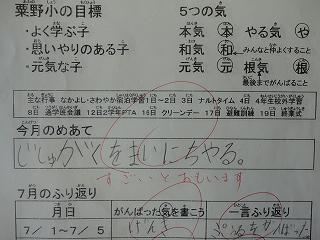 粟野小の目標
5つの気
・よく学ぶ子
本気 本 やる気 や
・思いやりのある子
和気 和 みんなと仲よくすること
・元気な子
元気 元 根気 根
最後までがんばること
主な行事 なかよしさわやか宿泊学習1日～2日 3日 ナルトタイム 4日 4年生校外学習
8日 通学班会議 12日2学年PTA 16日 クリーンデー 17日 避難訓練 19日 終業式
今月のめあて
じしゅがくをまいにちやる。
すごいとおもいます
7月のふり返り
月日
がんばった気を書こう
一言ふり返り
7/1～7/5
げんき
がんばった